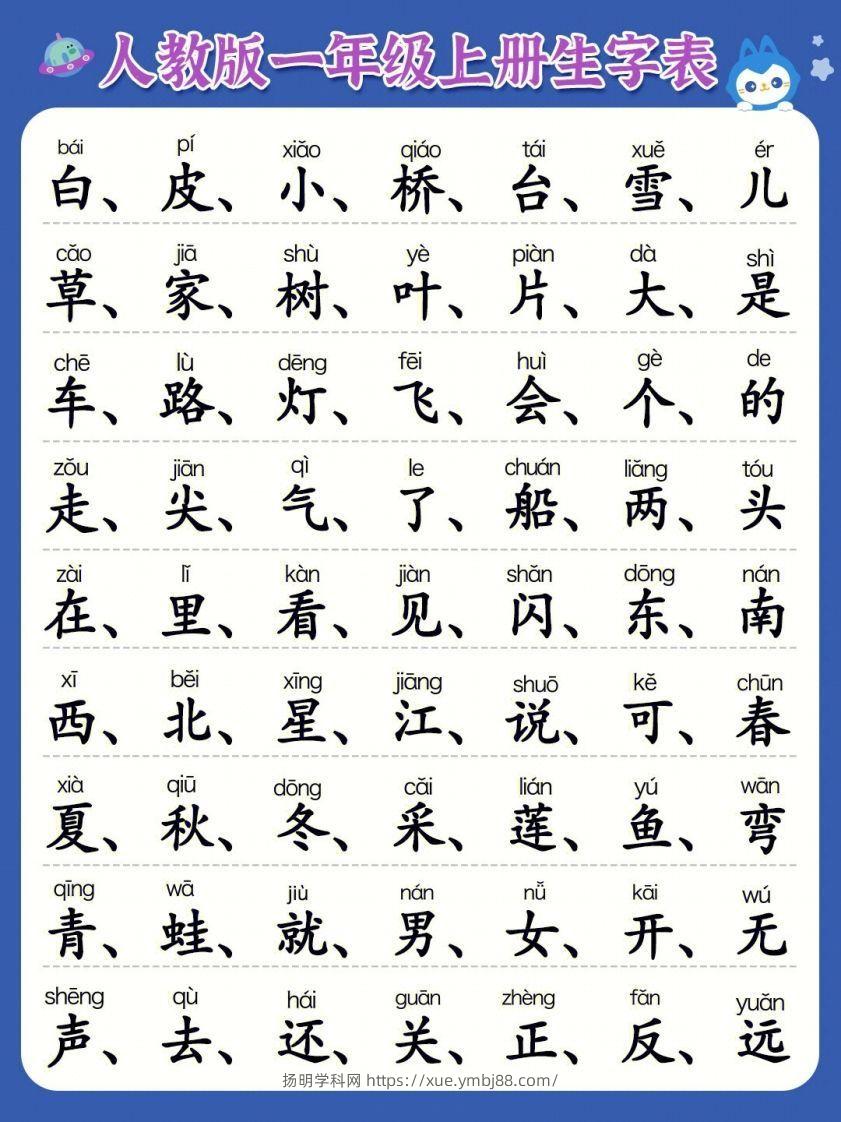 人教版一年级上册生字表
bái pí xiǎo qiáo tái xuě ér
白、皮、小、桥、台、雪、儿
cǎo jiā shù yè piàn dà shì
草、家、树、叶、片、大、是
chē lù dēng fēi huì gè de
车、路、灯、飞、会、个、的
zǒu jiān qì le chuán liǎng tóu
走、尖、气、了、船、两、头
zài lǐ kàn jiàn shǎn dōng nán
在、里、看、见、闪、东、南
xī běi xīng jiāng shuō kě chūn
西、北、星、江、说、可、春
xià qiū dōng cǎi lián yú wān
夏、秋、冬、采、莲、鱼、弯
qīng wā jiù nán nǚ kāi wú
青、蛙、就、男、女、开、无
shēng qù hái guān zhèng fǎn yuǎn
声、去、还、关、正、反、远
扬明学科网 https://xue.ymbj88.com/